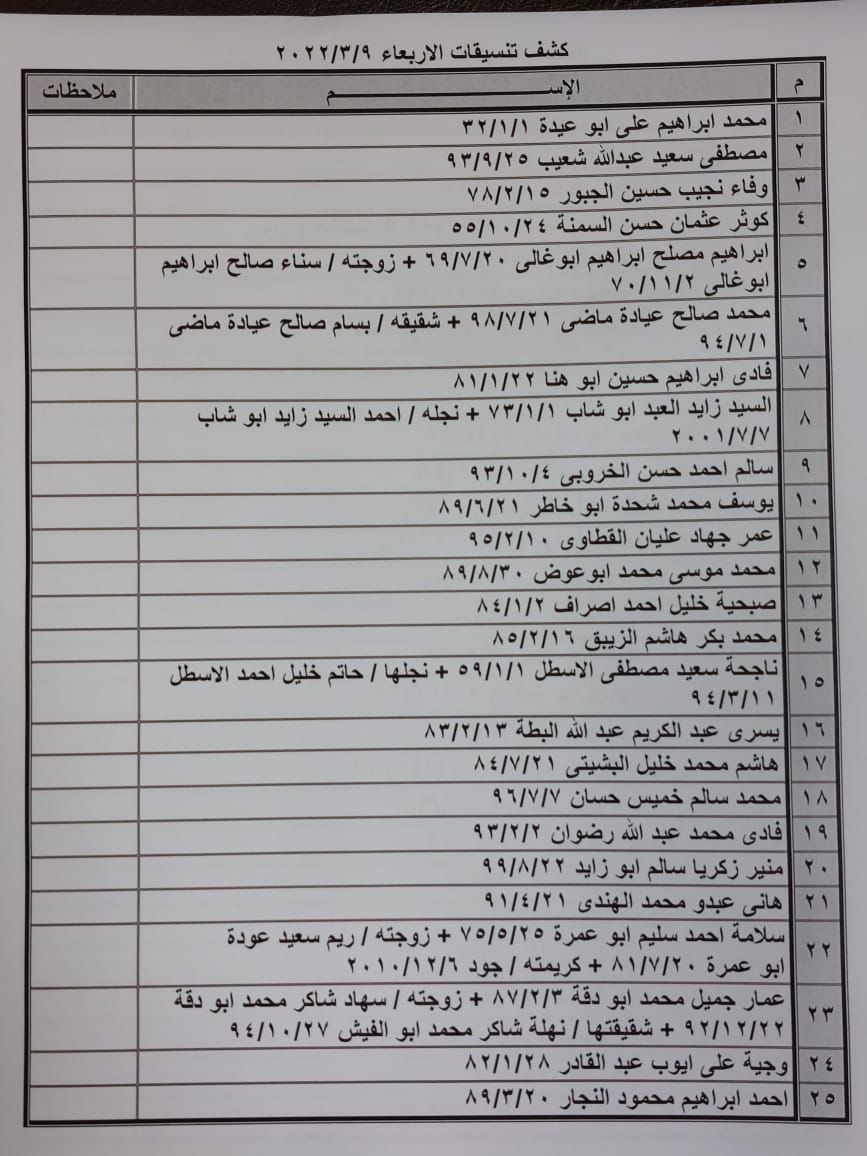 كشف تنسيقات الاربعاء ٢٠٢٢/٣/٩
م الإســـــــــم ملاحظات
١ محمد ابراهيم على ابو عيدة ٣٢/١/١
٢ مصطفى سعيد عبدالله شعيب ٩٣/٩/٢٥
٣ وفاء نجيب حسين الجبور ٧٨/٢/١٥
٤ كوثر عثمان حسن السمنة ٥٥/١٠/٢٤
٥ ابراهيم مصلح ابراهيم ابوغالى ٦٩/٧/٢٠ + زوجته / سناء صالح ابراهيم
ابوغالى ٧٠/١١/٢
٦ محمد صالح عيادة ماضى ٩٨/٧/٢١ + شقيقه / بسام صالح عيادة ماضى
٩٤/٧/١
٧ فادى ابراهيم حسين ابو هنا ٨١/١/٢٢
٨ السيد زايد العبد ابو شاب ٧٣/١/١ + نجله / احمد السيد زايد ابو شاب
٢٠٠١/٧/٧
٩ سالم احمد حسن الخروبى ٩٣/١٠/٤
١٠ يوسف محمد شحدة ابو خاطر ٨٩/٦/٢١
١١ عمر جهاد عليان القطاوى ٩٥/٢/١٠
١٢ محمد موسى محمد ابوعوض ٨٩/٨/٣٠
١٣ صبحية خليل احمد اصراف ٨٤/١/٢
١٤ محمد بكر هاشم الزيبق ٨٥/٢/١٦
١٥ ناجحة سعيد مصطفى الاسطل ٥٩/١/١ + نجلها / حاتم خليل احمد الاسطل
٩٤/٣/١١
١٦ يسرى عبد الكريم عبد الله البطة ٨٣/٢/١٣
١٧ هاشم محمد خليل البشيتى ٨٤/٧/٢١
١٨ محمد سالم خميس حسان ٩٦/٧/٧
١٩ فادى محمد عبد الله رضوان ٩٣/٢/٢
٢٠ منير زكريا سالم ابو زايد ٩٩/٨/٢٢
٢١ هانى عبدو محمد الهندى ٩١/٤/٢١
٢٢ سلامة احمد سليم ابو عمرة ٧٥/٥/٢٥ + زوجته / ريم سعيد عودة
ابو عمرة ٨١/٧/٢٠ + كريمته / جود ٢٠١٠/١٢/٦
٢٣ عمار جميل محمد ابو دقة ٨٧/٢/٣ + زوجته / سهاد شاكر محمد ابو دقة
٩٢/١٢/٢٢ + شقيقتها / نهلة شاكر محمد ابو الفيش ٩٤/١٠/٢٧
٢٤ وجية على ايوب عبد القادر ٨٢/١/٢٨
٢٥ احمد ابراهيم محمود النجار ٨٩/٣/٢٠